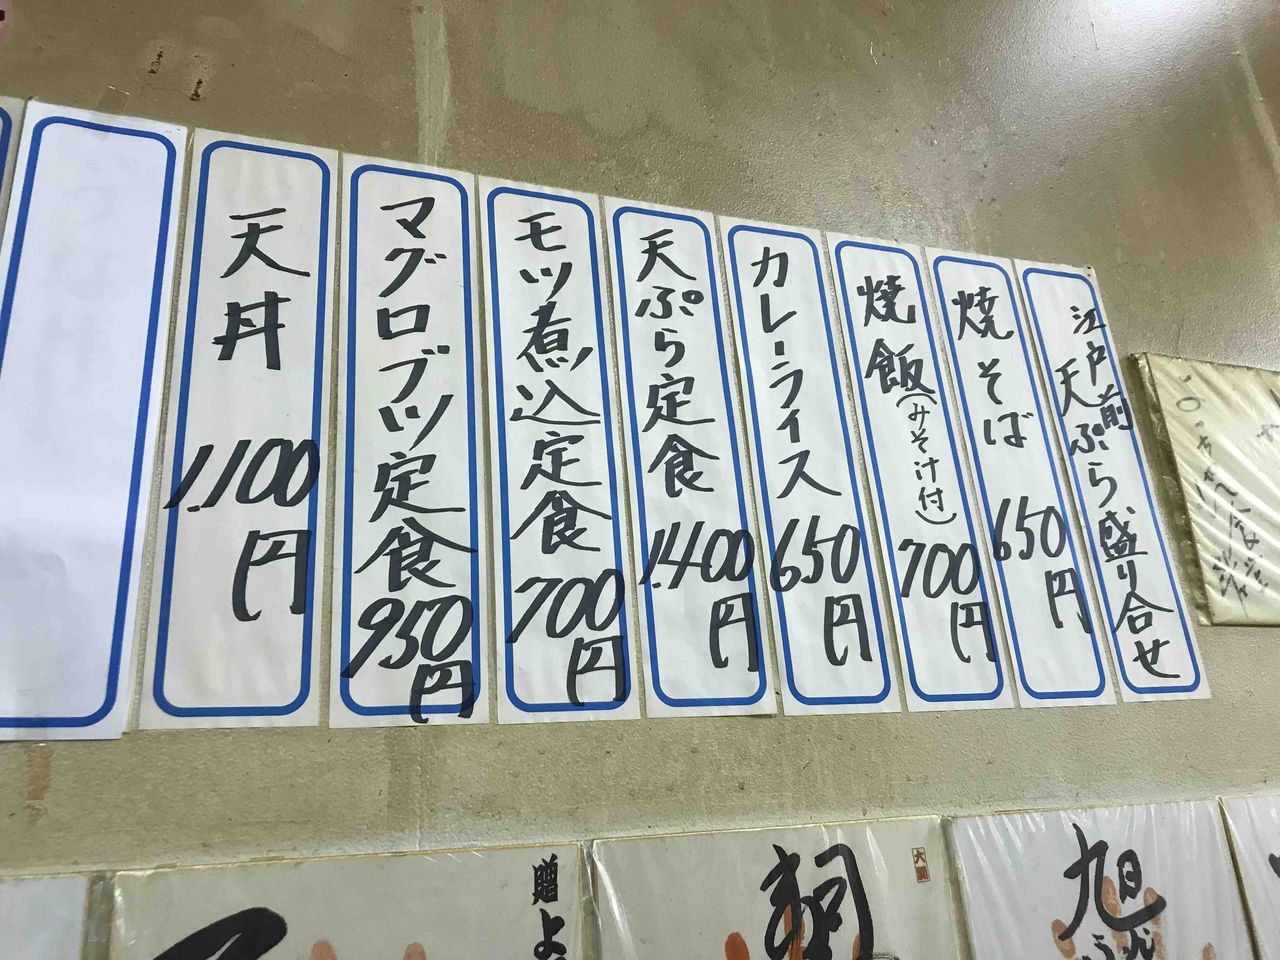 江戸前
天ぷら盛り合せ
焼そば 650円
焼飯(みそ汁付) 700円
カレーライス 650円
天ぷら定食 1.400円
モツ煮込定食 700円
マグロブツ定食 950円
天丼 1.100円
旭
贈